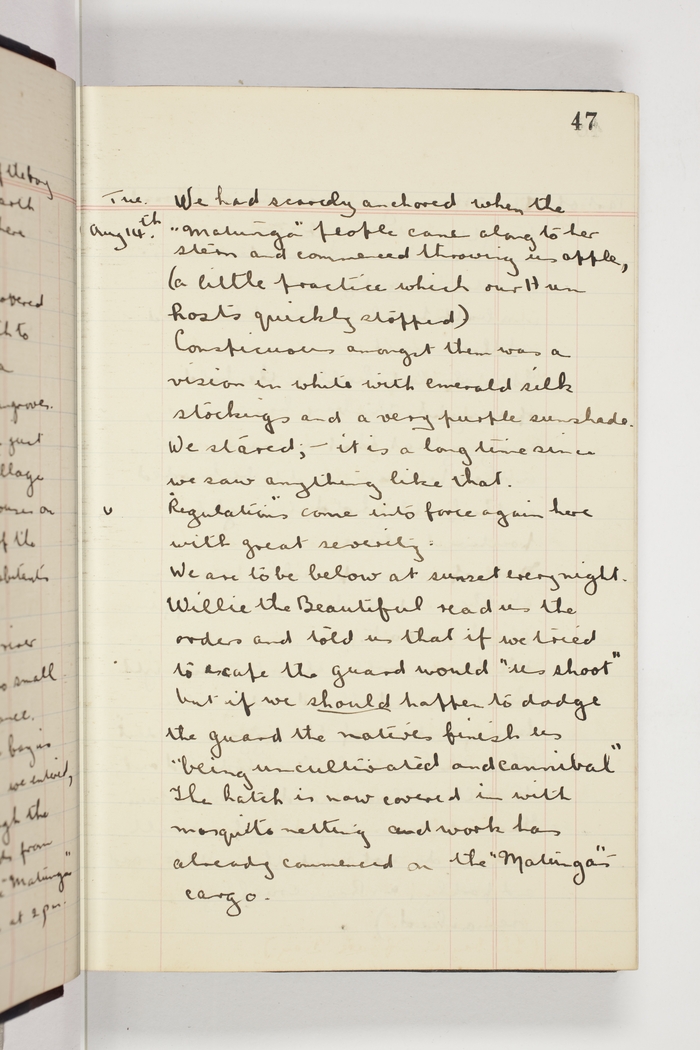 47
Tue. We had scarcely anchored when the
Aug 14th. "Matunga" people came along to her
stern and commenced throwing us apples,
(a little practice which our Hun
hosts quickly stopped)
Conspicuous amongst them was a
vision in white with emerald silk
stockings and a very purple sunshade.
We stared; – it is a long time since
we saw anything like that.
"Regulations" come into force again here
with great severity.
We are to be below at sunset every night.
Willie the Beautiful read us the
orders and told us that if we tried
to escape the guard would "us shoot"
but if we should happen to dodge
the guard the natives finish us
"being uncultivated and cannibal"
The hatch is now covered in with
mosquito netting and work has
already commenced on the "Matunga's"
cargo.
f the bay
here
overed
th to
a
ngroves.
llage
ouses on
of the
small
begin
we entered,
gh the
from
"Matunga"
at 2 pm.